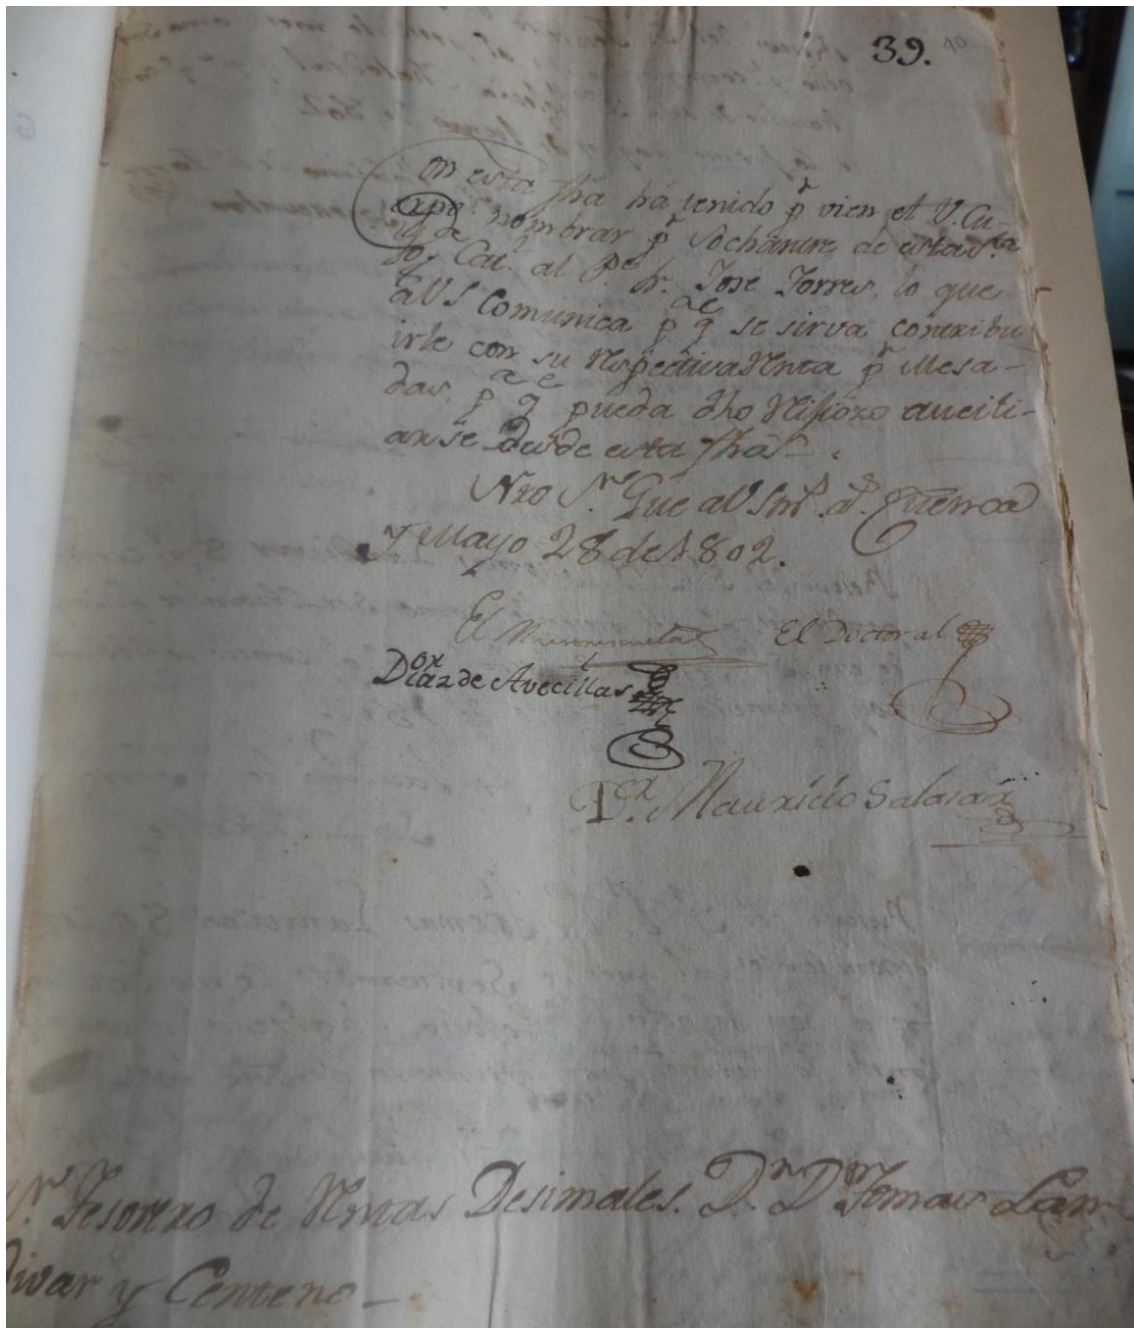 39. 40
Con esta fha há tenido pr vien el V. Cu-
erpo nombrar pr Sochantre de esta Sta
Yga Cat. al Pe. Fr. José Torres, lo que
á VS Comunica pa qe se sirva contribu
irle con su respectiva renta pr Mesa-
das, pa qe pueda dho Religioso aucili-
arse desde esta fha.
Nro Sr. Gue á VS ms. as. Cuenca
y Mayo 28 de 1802.
El El Doctoral
Dor Diaz de Avecillas
Dor. Mauricio Salazar
Sr. Tesorero de Rentas Desimales. Dr. Dn Tomas Lan-
divar y Centeno-